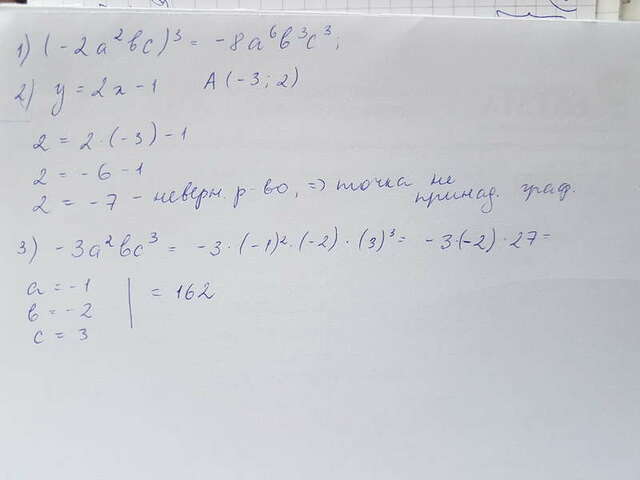 1) (-2a²bc)³ = -8a⁶b³c³;
2) y = 2x - 1 A (-3; 2)
2 = 2·(-3) - 1
2 = -6 - 1
2 = -7 - неверн. р-во, => точка не принад. граф.
3) -3a²bc³ = -3·(-1)²·(-2)·(3)³ = -3·(-2)·27 =
a = -1
b = -2
c = 3
= 162